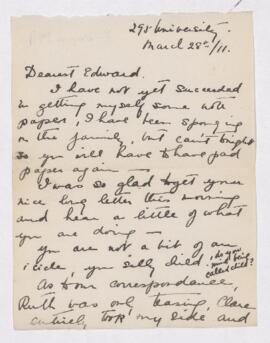 298 University.
March 28th/11.
Dearest Edward.
I have not yet succeeded
in getting myself some note
paper, I have been sponging
on the family, but can't tonight
so you will have to have pad
paper again —
I was so glad to get your
nice long letter this morning
and hear a little of what
you are doing —
You are not a bit of an
icicle, you silly child. do you
mind being
called child?
As to our correspondance,
Ruth was only teasing, Clare
took my side and